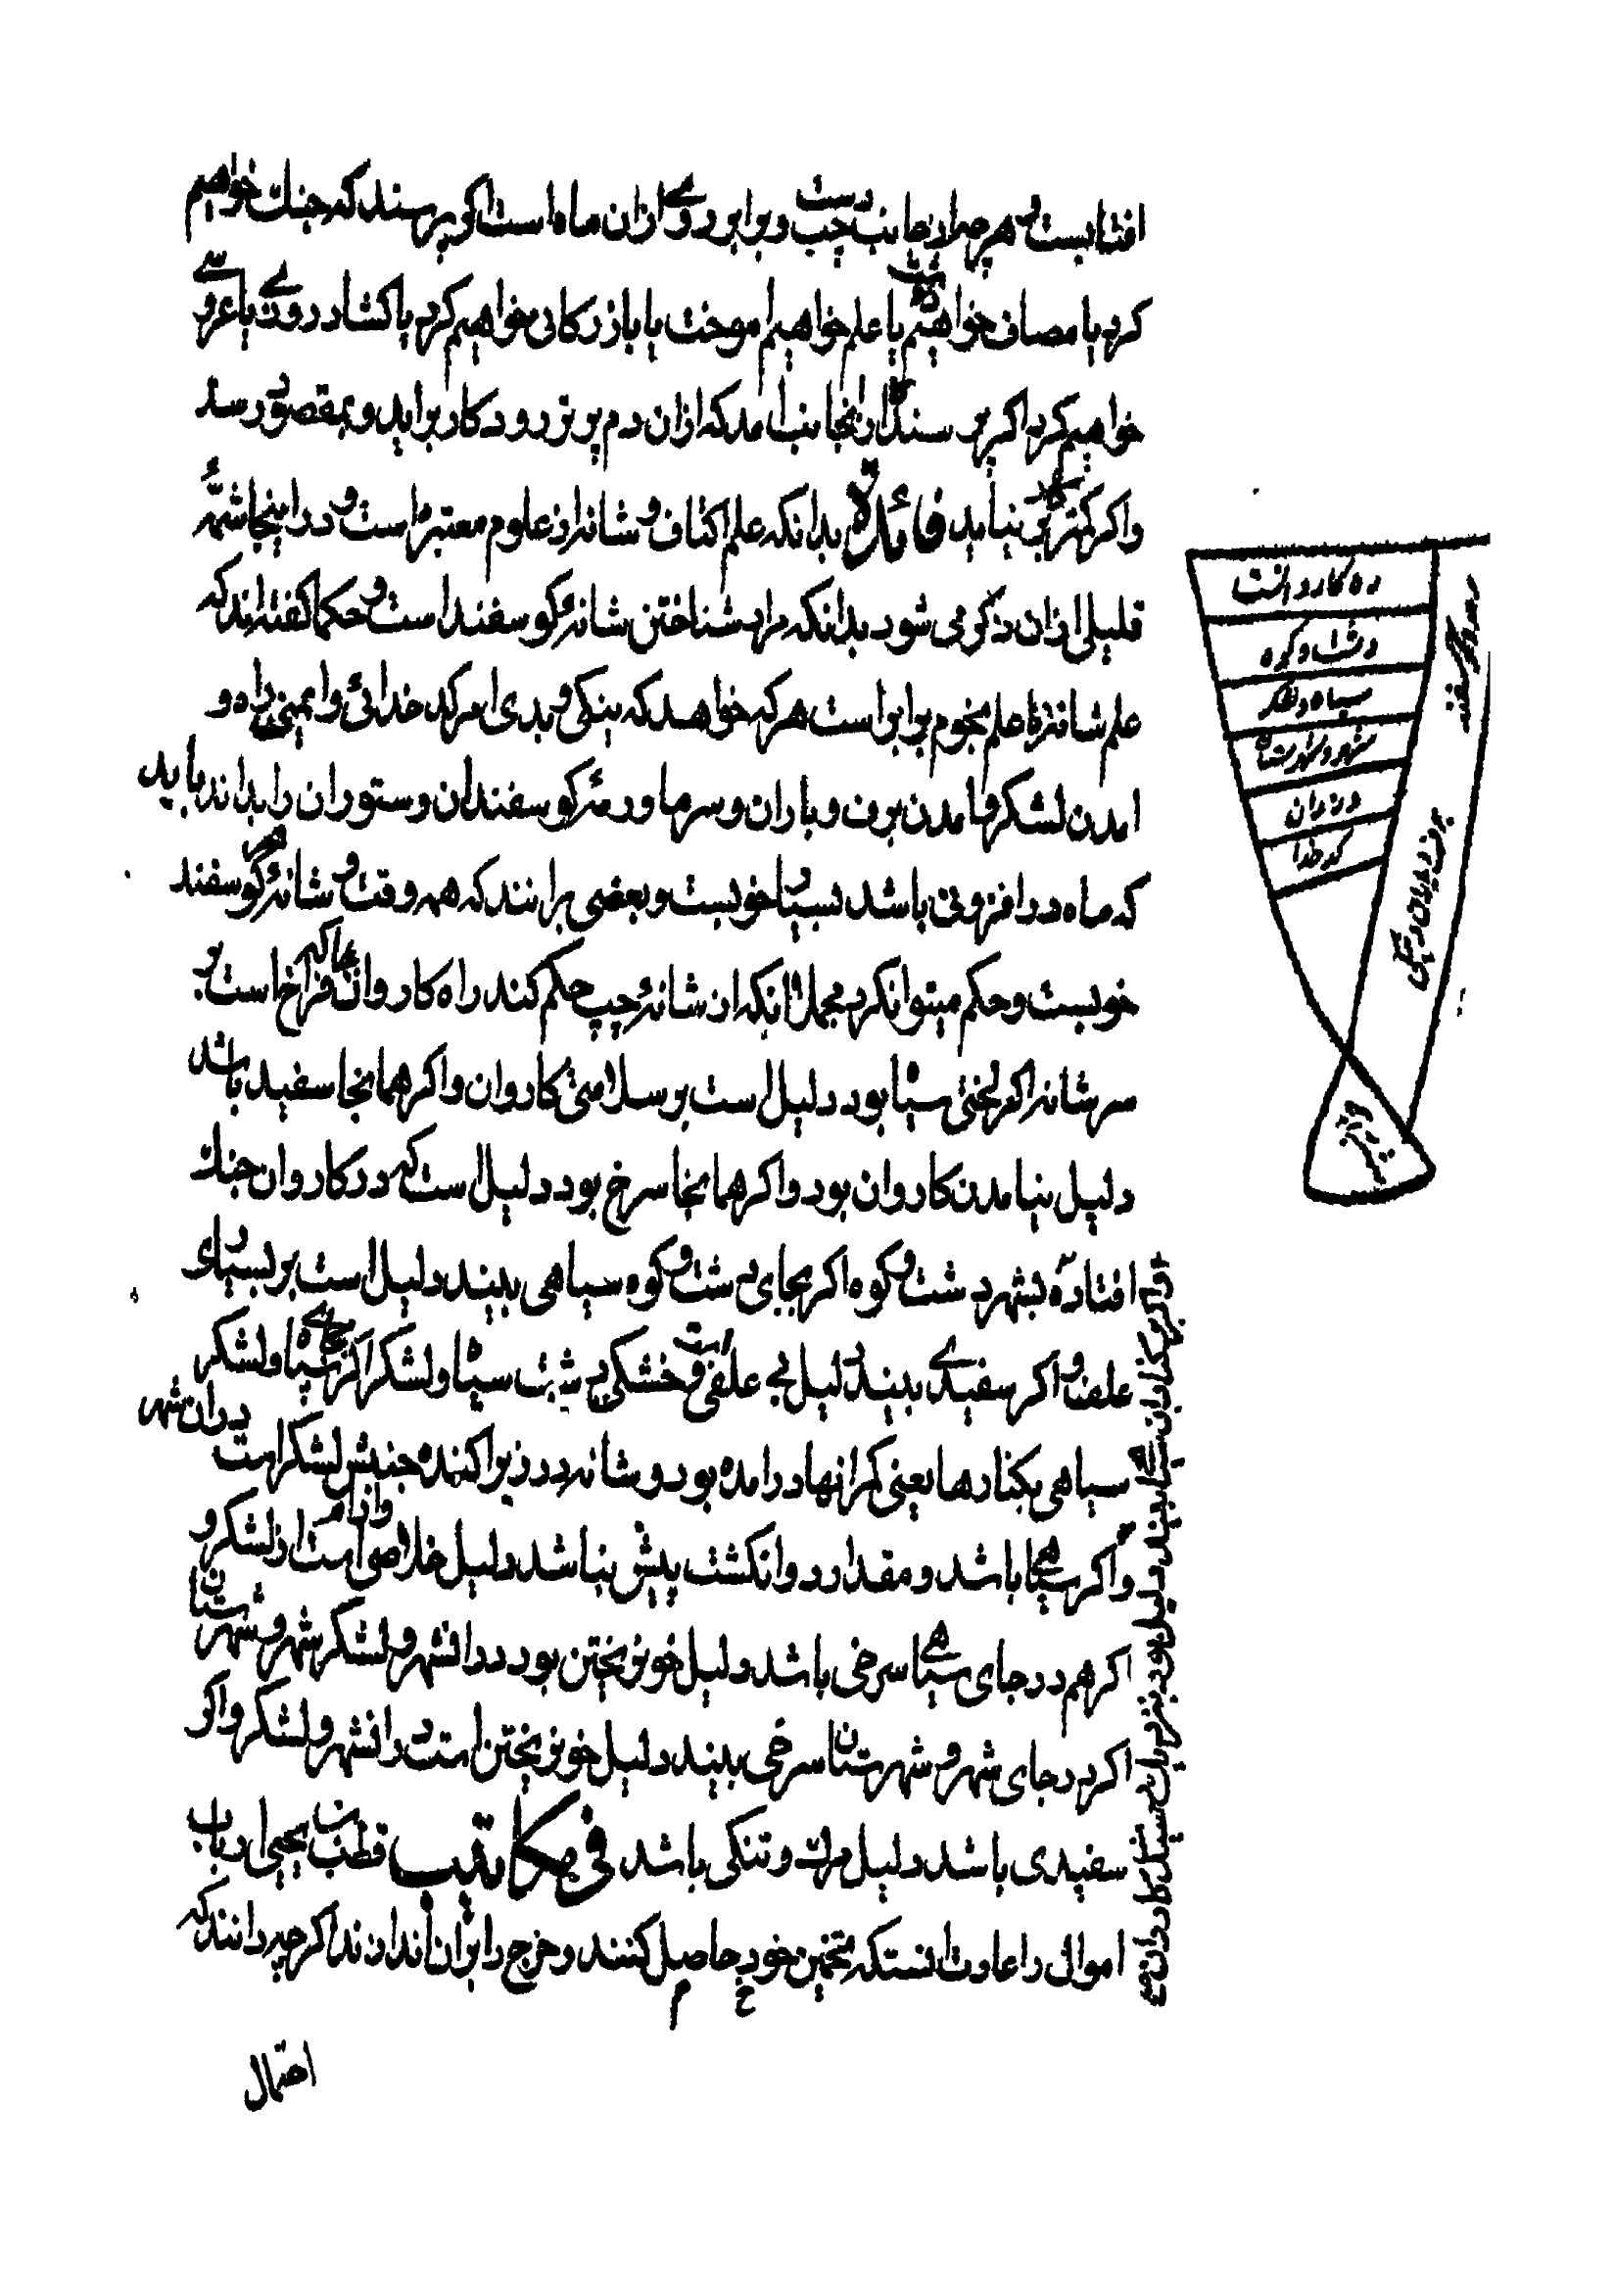 افتابست هر چه از جانب دست چپ و برابر روی ازان ماه است اکر پرسند که جنک خواهیم
کرد یا مصاف خواهیم یا علم خواهیم اموخت یا بازرکانی خواهیم کرد یا کشادروی یا عروسی
خواهیم کرد اکر پرسند از انجانب امد که ازان دم پر تر رود کار براید و بمقصود رسد
و اکر کمتر بر نیاید فائدة بدانکه علم اکتاف و شانه از علوم معتبر است و در اینجا شمهٔ
قلیلی ازان ذکر می شود بدانکه مراد شناختن شانهٔ کوسفند است و حکما کفته‌اند که
علم شانه با علم نجوم برابر است هر که خواهد که نیکی و بدی امر کدخدائی و ایمنی راه و
امدن لشکر و امدن برف و باران و سرما و رمهٔ کوسفندان و ستوران را بداند باید
که ماه در افزونی باشد بسیار خوبست و بعضی برانند که همه وقت و شانهٔ هر کوسفند
خوبست و حکم میتوان کرد مجملا انکه از شانهٔ چپ حکم کنند راه کاروان بجا که فراخ است بر
سر شانه اکر لختی سیاه بود دلیل است بر سلامتی کاروان و اکر همانجا سفید باشد
دلیل نیامدن کاروان بود و اکر همانجا سرخ بود دلیل است که در کاروان جنک
افتاده بشهر دشت و کوه اکر بجای دشت و کوه سیاهی بیند دلیل است بر بسیاری
علف و اکر سفیدی بیند دلیل بی علفی و خشکی است سپاه و لشکر اکر بجای سپاه و لشکر
سیاهی بکنارها یعنی کرانها درامده بود و شانه در زیر اکنده جنبش لشکر است دران شهر
و اکر سیاهی باشد و مقدار دو انکشت پیش نباشد دلیل خلاصی است از لشکر و وازام
اکر هم در جای سیاهی سرخی باشد دلیل خونریختن بود در انشهر و لشکر شهر و شهرستان
اکر در جای شهر و شهرستان سرخی بیند دلیل خونریختن است در انشهر و لشکر و اکر
سفیدی باشد دلیل مرک و تنکی باشد فی مکاتیب قطب یحیی ارباب
اموال را عادت انستکه تخمین خود حاصل کنند و خرج را بران اندازند اکر چه دانند که
احتمال
راه کاروانست
دشت و کوه
سپاه و لشکر
شهر و شهرستان
وزیران
کدخدا
برف و باران و تنکی